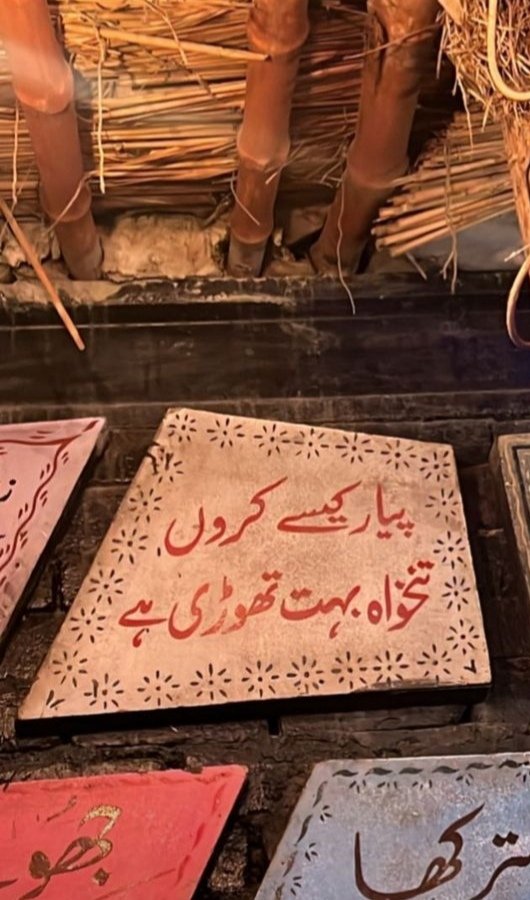 پیار کیسے کروں
تنخواہ بہت تھوڑی ہے